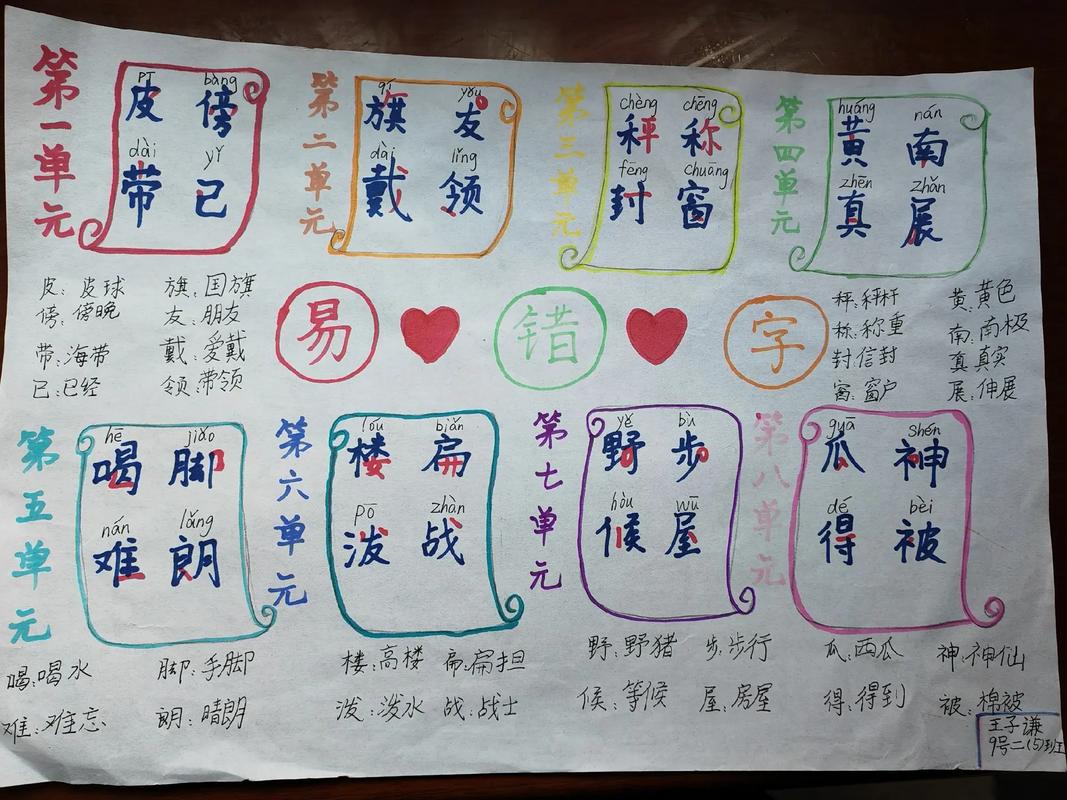 第一单元
pí bàng
皮 傍
dài yǐ
带 已
第二单元
qí yǒu
旗 友
dài lǐng
戴 领
第三单元
chèng chēng
秤 称
fēng chuāng
封 窗
第四单元
huáng nán
黄 南
zhēn zhǎn
真 展
皮:皮球
傍:傍晚
带:海带
已:已经
旗:国旗
友:朋友
戴:爱戴
领:带领
易 错 字
秤:秤杆
称:称重
封:信封
窗:窗户
黄:黄色
南:南极
真:真实
展:伸展
第五单元
hē jiǎo
喝 脚
nán lǎng
难 朗
第六单元
lóu biǎn
楼 扁
pō zhàn
泼 战
第七单元
yě bù
野 步
hòu wū
候 屋
第八单元
guā shén
瓜 神
dé bèi
得 被
喝:喝水
脚:手脚
难:难忘
朗:晴朗
楼:高楼 扁:扁担
泼:泼水 战:战士
野:野猪 步:步行
候:等候 屋:房屋
瓜:西瓜 神:神仙
得:得到 被:棉被
王子谦
9号二(5)班